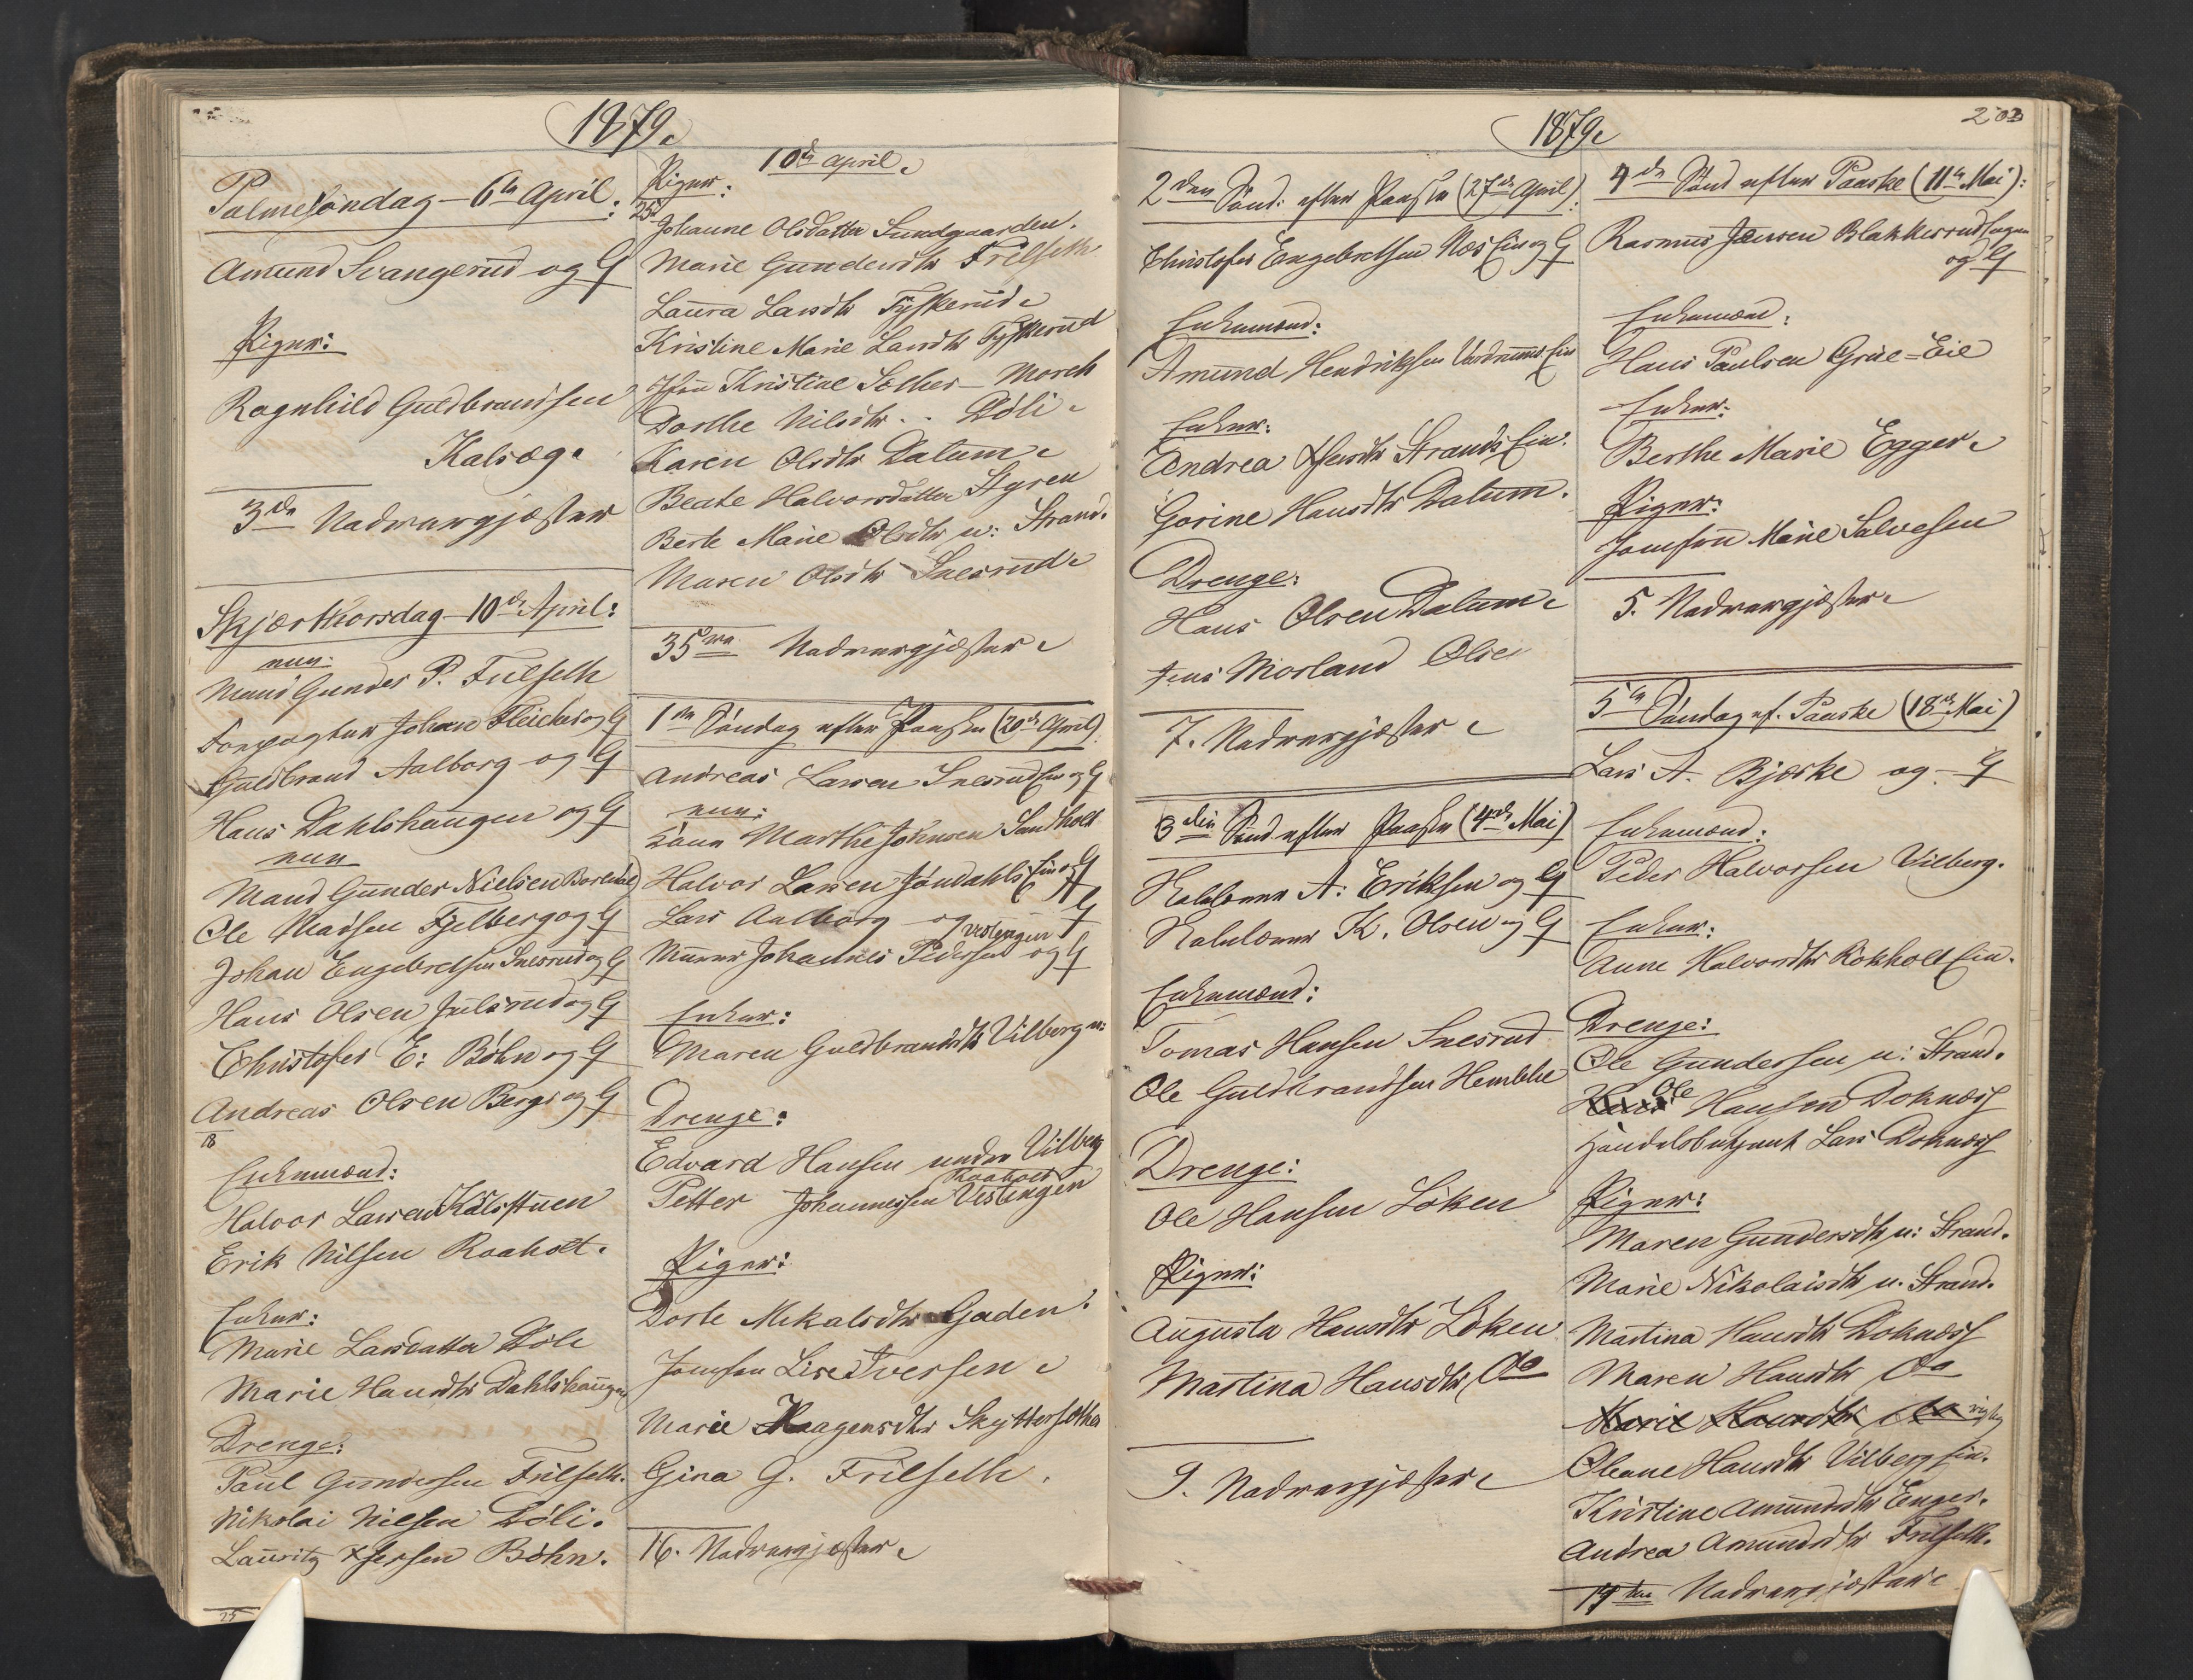 1879.
Palmesøndag – 6te April.
Amund Svangerud og G
Piger:
Ragnhild Guldbrandsen
Kalsæg.
3de Nadvergjæster
Skjærthorsdag – 10de April:
Mand Gunder P. Frilseth
Forpagter Johan Fleicher og G
Guldbrand Aalborg og G
Hans Dahlshaugen og G
Mand Gunder Nielsen
Ole Madsen Fjelberg og G
Johan Engebretsen Snesrud og G
Hans Olsen Julsrud og G
Christofer E: Bøhn og G
Andreas Olsen Berger og G
18
Enkemænd:
Halvor Larsen Kålsstuen
Erik Nilsen Raaholt.
Enker:
Marie Larsdatter Døli
Marie Hansdtr Dahlshaugen
Drenge:
Paul Gundersen Frilseth.
Nikolai Nilsen Døli.
Lauritz Xfersen Bøhn.
25
10de April.
Piger:
25
Johanne Olsdatter Sundgaarden.
Marie Gundersdtr Frilseth
Laura Larsdtr Tyskerud.
Kristine Marie Larsdtr Tyskerud
Jfru Kristine Sother – Morch
Dorthe Nilsdtr .. Døli.
Karen Olsdtr Dalum.
Beate Halvorsdatter Styren
Berte Marie Olsdtr u: Strand.
Maren Olsdtr Snesrud.
35 Nadvergjæster.
1ste Søndag efter Paaske (20de April)
Andreas Larsen Snesrud Eie og G
Marthe Johnsen Sandholt
Halvor Larsen Jøndahls Eie og G
Lars Aalborg – og G
Vestengen
Murer Johannes Pedersen og G
Enker:
Maren Guldbrandsdtr Vilberg u:
Drenge:
Edvard Hansen under Vilberg
Raaholt
Petter Johannessen Vestengen
Piger:
Dorte Mikalsdtr Gaden.
Jomfru Lise Iversen.
Marie Haagensdtr Skyttersether
Gina G. Frilseth.
16. Nadvergjæster.
1879.
203
2den Sønd: efter Paaske (27de April).
Christofer Engebretsen Næs Eie og G
Enkemænd:
Amund Hendriksen Eie
Enker:
Andrea Xfersdtr Strands Eie.
Gorine Hansdtr Dalum.
Drenge:
Hans Olsen Dalum.
Jens Morland Olsen
7. Nadvergjæster.
3die Sønd efter Paaske (4de Mai)
A: Eriksen og G
K. Olsen og G
Enkemænd:
Tomas Hansen Snesrud
Ole Guldbrandsen Hemblie
Drenge:
Ole Hansen Løken
Piger:
Augusta Hansdtr Løken
Martina Hansdtr Do
9. Nadvergjæster.
4de Sønd efter Paaske (11te Mai):
Rasmus Jensen Blakkesrudhagen
og G
Enkemænd:
Hans Paulsen Grue-Eie
Enker:
Berthe Marie Egger.
Piger:
Jomfru Marie Salvesen
5. Nadvergjæster.
5te Søndag ef. Paaske (18de Mai)
Lars A. Bjørke og G
Enkemænd:
Peder Halvorsen Vilberg.
Enker:
Anne Halvorsdtr Rokholt Eie.
Drenge:
Ole Gundersen u: Strand.
Ole Hansen Doknæss
Handelsbetjent Lars Doknæss
Piger:
Maren Gundersdtr u: Strand.
Marie Nikolaisdtr u. Strand.
Martina Hansdtr Doknæss
Maren Hansdtr Do
Marie Hansdtr Do
Oleane Hansdtr Vilberg Eie.
Kristine Amundsdtr Enger.
Andrea Amundsdtr Frilseth.
14ten Nadvergjæster.